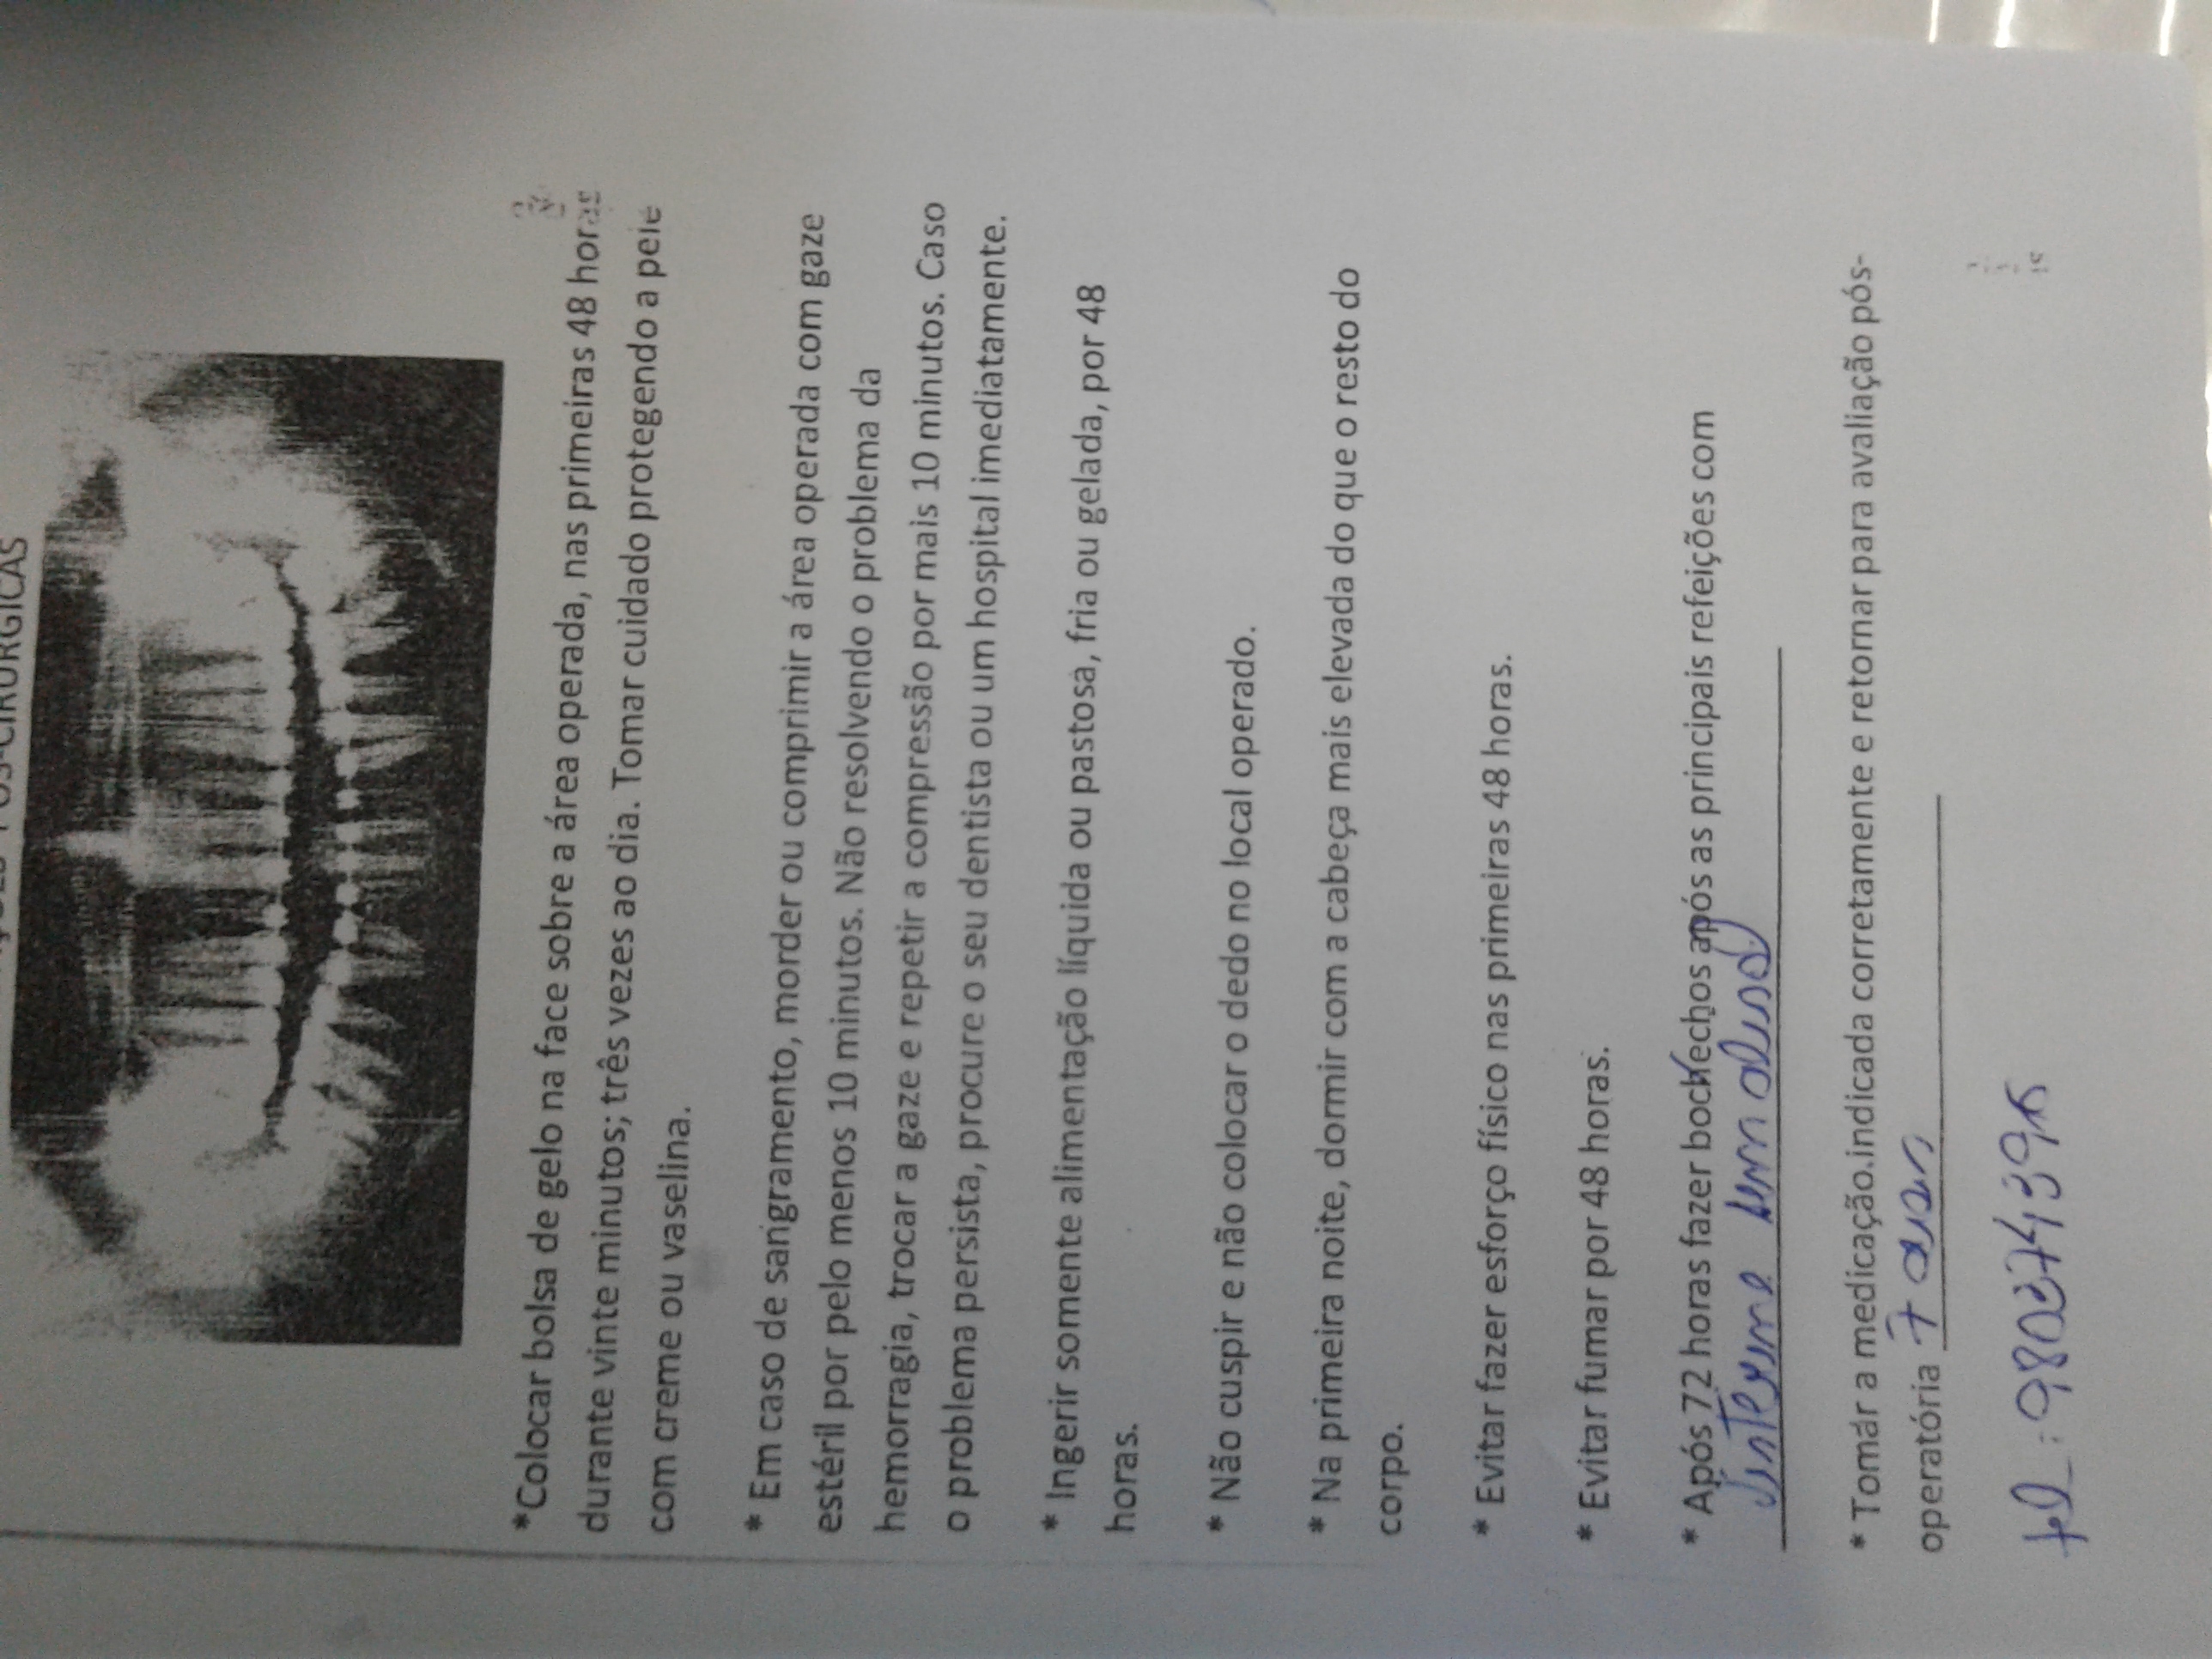 PÓS-CIRÚRGICAS
*Colocar bolsa de gelo na face sobre a área operada, nas primeiras 48 horas
durante vinte minutos; três vezes ao dia. Tomar cuidado protegendo a pele
com creme ou vaselina.
* Em caso de sangramento, morder ou comprimir a área operada com gaze
estéril por pelo menos 10 minutos. Não resolvendo o problema da
hemorragia, trocar a gaze e repetir a compressão por mais 10 minutos. Caso
o problema persista, procure o seu dentista ou um hospital imediatamente.
* Ingerir somente alimentação líquida ou pastosa, fria ou gelada, por 48
horas.
* Não cuspir e não colocar o dedo no local operado.
* Na primeira noite, dormir com a cabeça mais elevada do que o resto do
corpo.
* Evitar fazer esforço físico nas primeiras 48 horas.
* Evitar fumar por 48 horas.
* Após 72 horas fazer bochechos após as principais refeições com
sem álcool
* Tomar a medicação indicada corretamente e retornar para avaliação pós-
operatória 7 dias